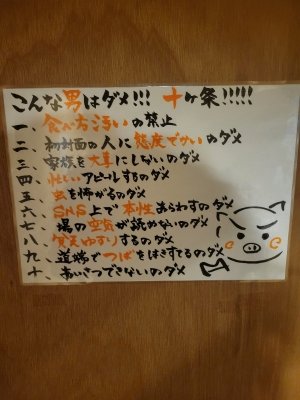 こんな男はダメ!!! 十ヶ条!!!!!
一、食べ方汚いの禁止
二、初対面の人に態度でかいのダメ
三、家族を大事にしないのダメ
四、忙しいアピールするのダメ
五、虫を怖がるのダメ
六、SNS上で本性あらわすのダメ
七、場の空気が読めないのダメ
八、貧乏ゆすりするのダメ
九、道端でつばをはきすてるのダメ
十、あいさつできないのダメ